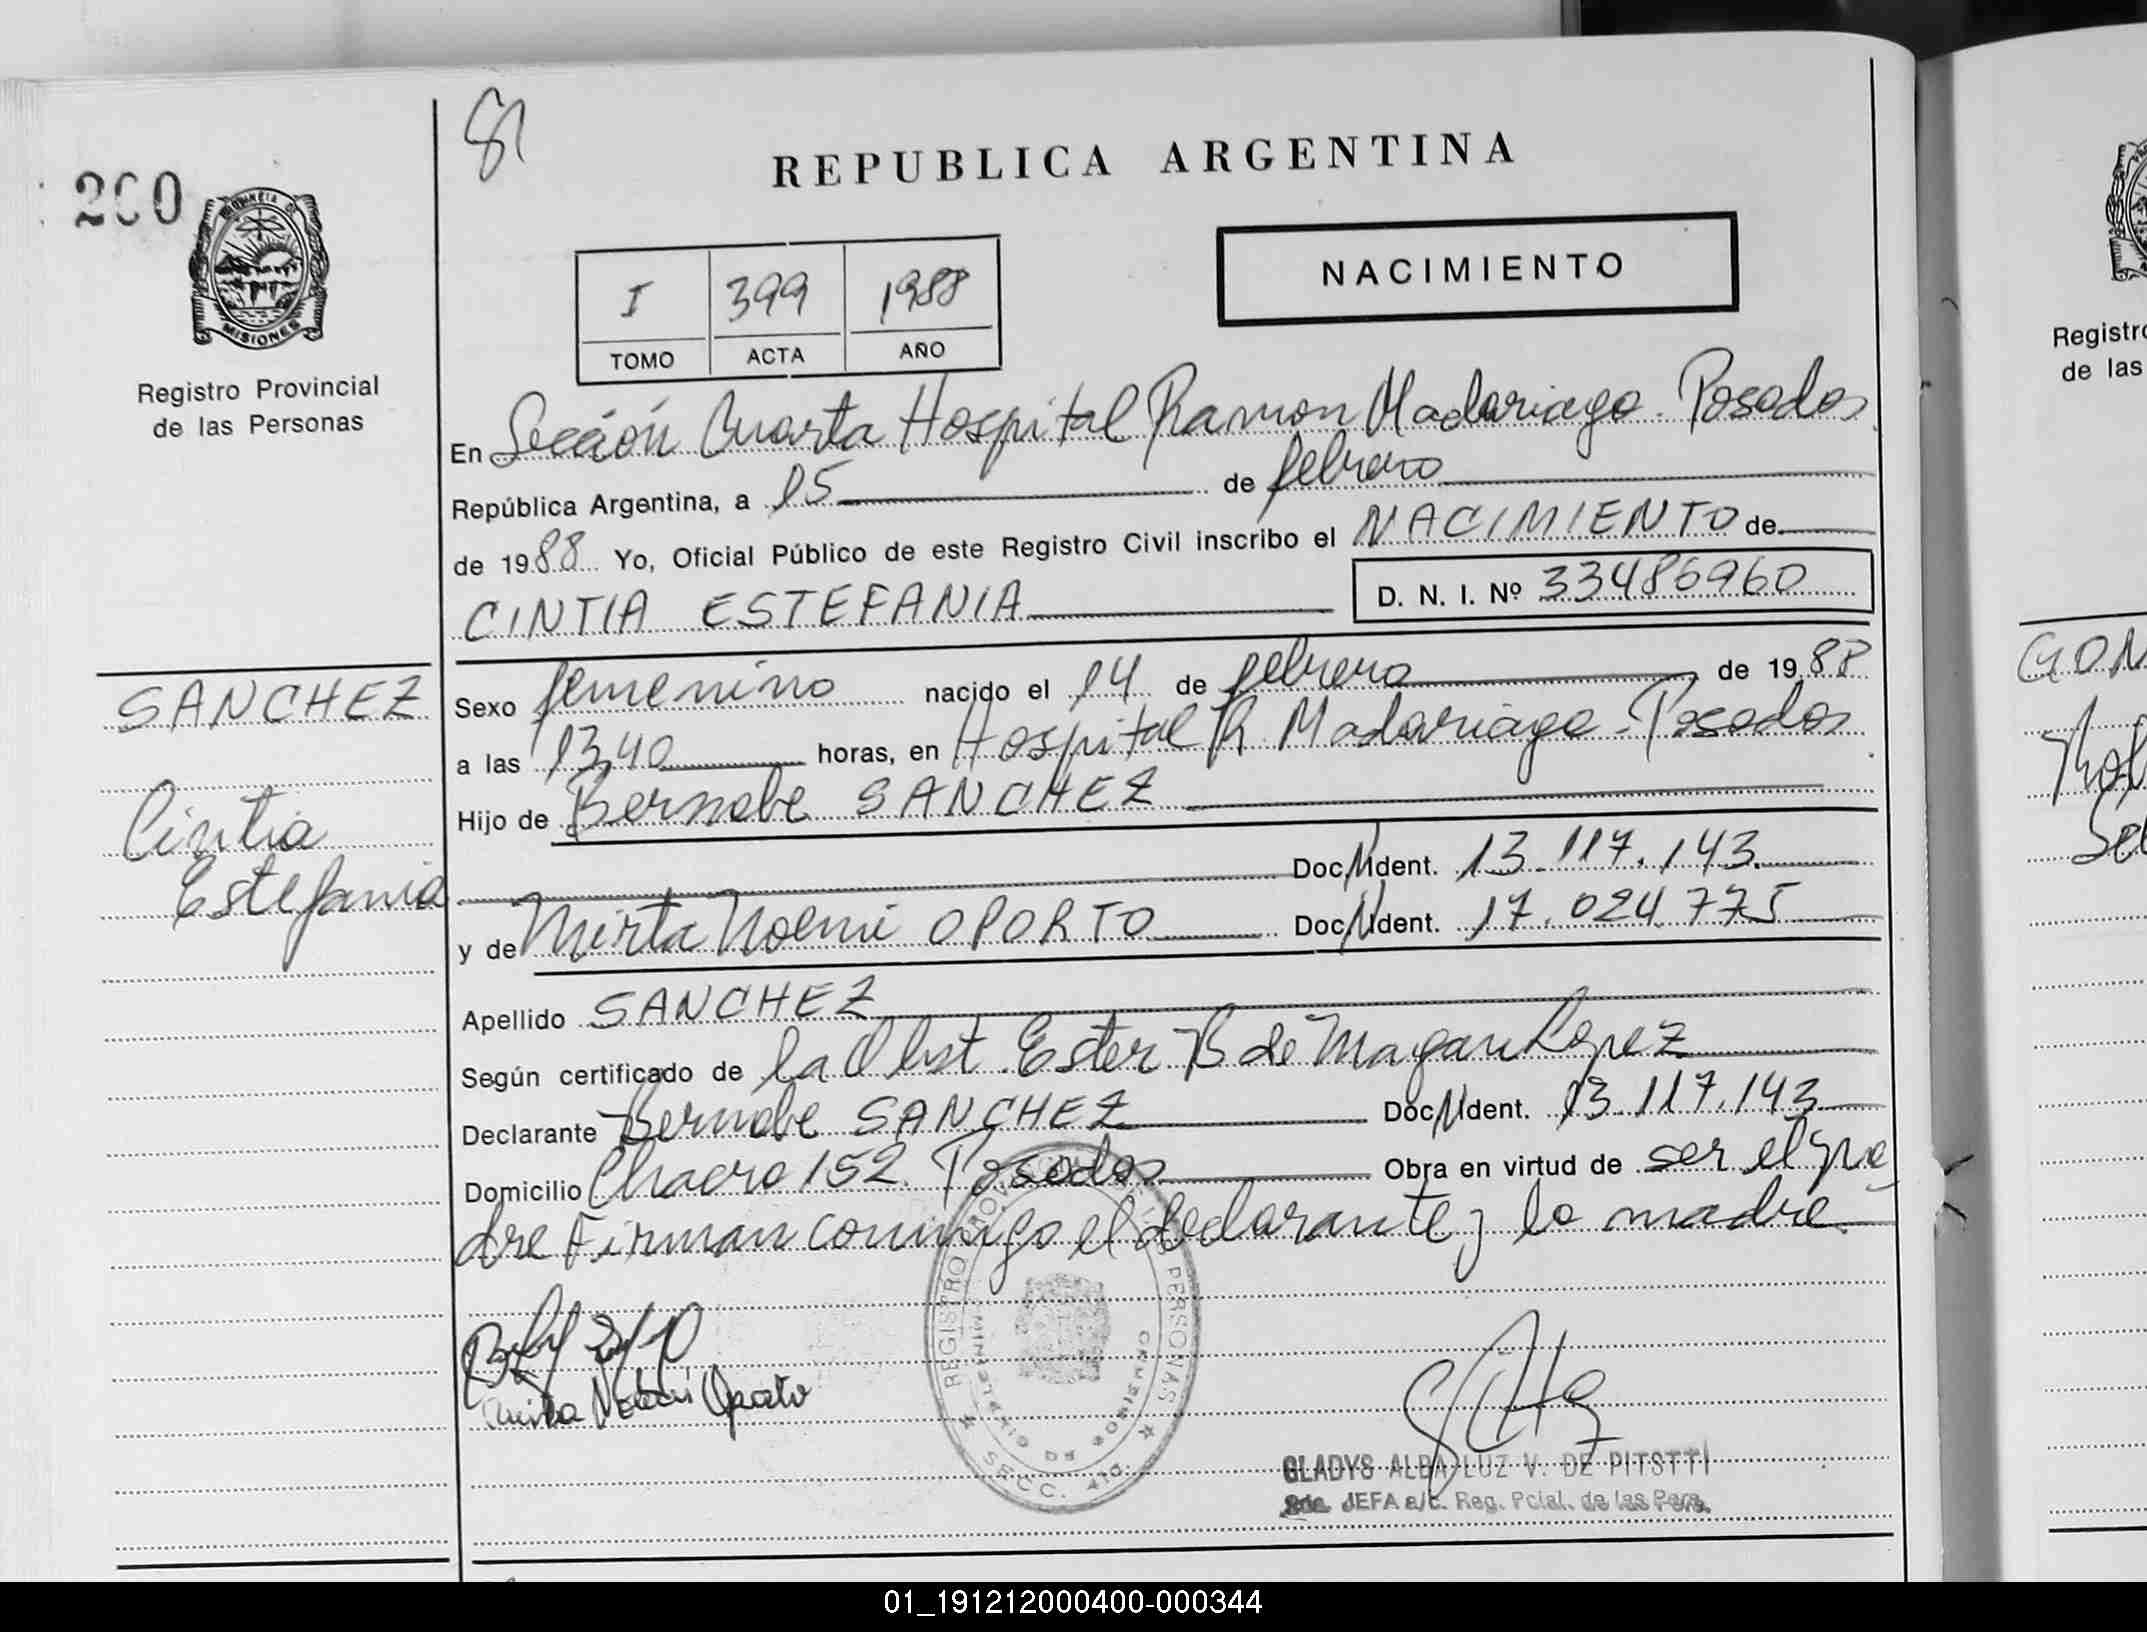 81
REPUBLICA ARGENTINA
200
PROVINCIA DE MISIONES
Registro Provincial
de las Personas
NACIMIENTO
I 399 1988
TOMO ACTA AÑO
En Sección Cuarta Hospital Ramon Madariaga. Posadas
República Argentina, a 15 de febrero
de 1988 Yo, Oficial Público de este Registro Civil inscribo el NACIMIENTO de
CINTIA ESTEFANIA D. N. I. Nº 33486960
SANCHEZ
Cintia
Estefania
Sexo femenino nacido el 14 de febrero de 1988
a las 13,40 horas, en Hospital R. Madariaga. Posadas
Hijo de Bernabe SANCHEZ
Doc. Ident. 13.117.143
y de Mirta Noemi OPORTO Doc. Ident. 17.024.775
Apellido SANCHEZ
Según certificado de la Obst. Ester B de Magan Lopez
Declarante Bernabe SANCHEZ Doc. Ident. 13.117.143
Domicilio Chacra 152. Posadas Obra en virtud de ser el pa
dre Firman conmigo el declarante y la madre
Oporto
REGISTRO PERSONAS
MINISTERIO DE GOBIERNO
SECC. 4ta.
GLADYS ALBA LUZ V. DE PITSTTI
JEFA a/c. Reg. Pcial. de las Pers.
Registro
de las
GON
Rol
Se
01_191212000400-000344